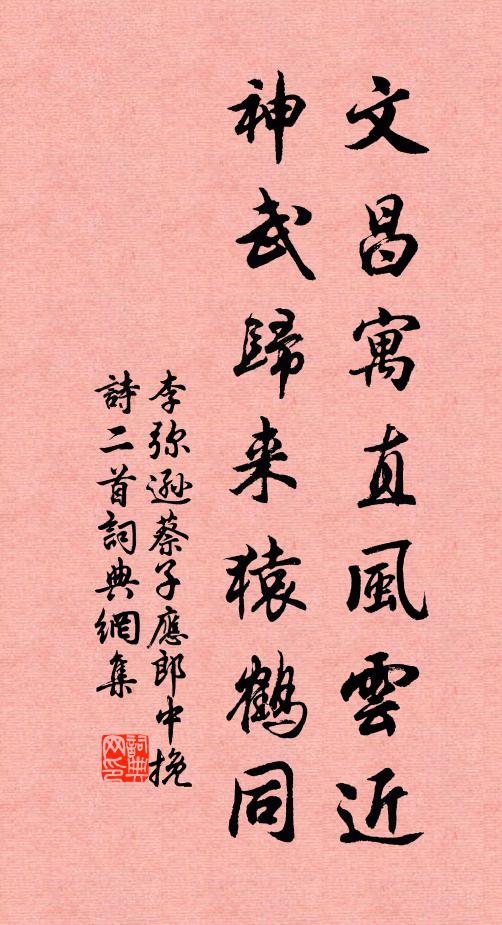 文昌寓直風雲近
神武歸来猿鶴同
李弥遜蔡子應郎中挽
詩二首詞典網集
詞典
网印